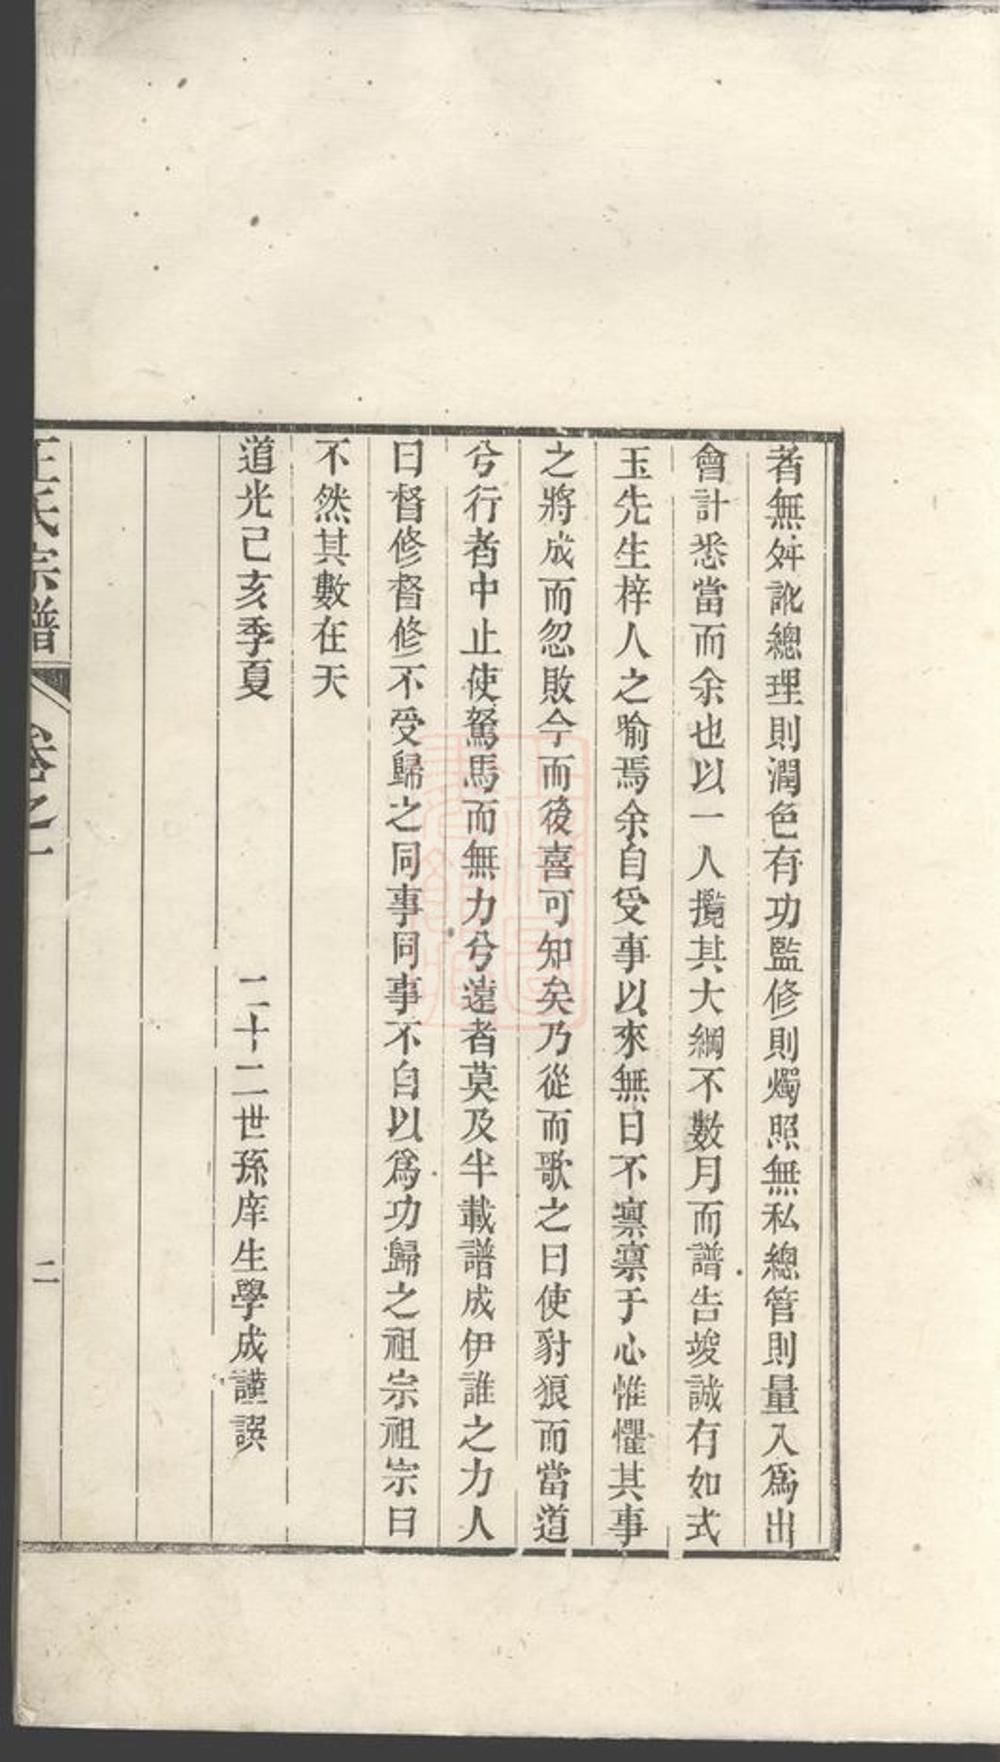 者無舛訛總理則潤色有功監修則燭照無私總管則量入爲出
會計悉當而余也以一人攬其大綱不數月而譜告竣誠有如式
玉先生梓人之喻焉余自受事以來無日不稟稟于心惟懼其事
之將成而忽敗今而後喜可知矣乃從而歌之曰使豺狼而當道
兮行者中止使駑馬而無力兮遠者莫及半載譜成伊誰之力人
曰督修督修不受歸之同事同事不自以爲功歸之祖宗祖宗曰
不然其數在天
道光己亥季夏
二十二世孫庠生學成謹譔
氏宗譜
卷之一
二